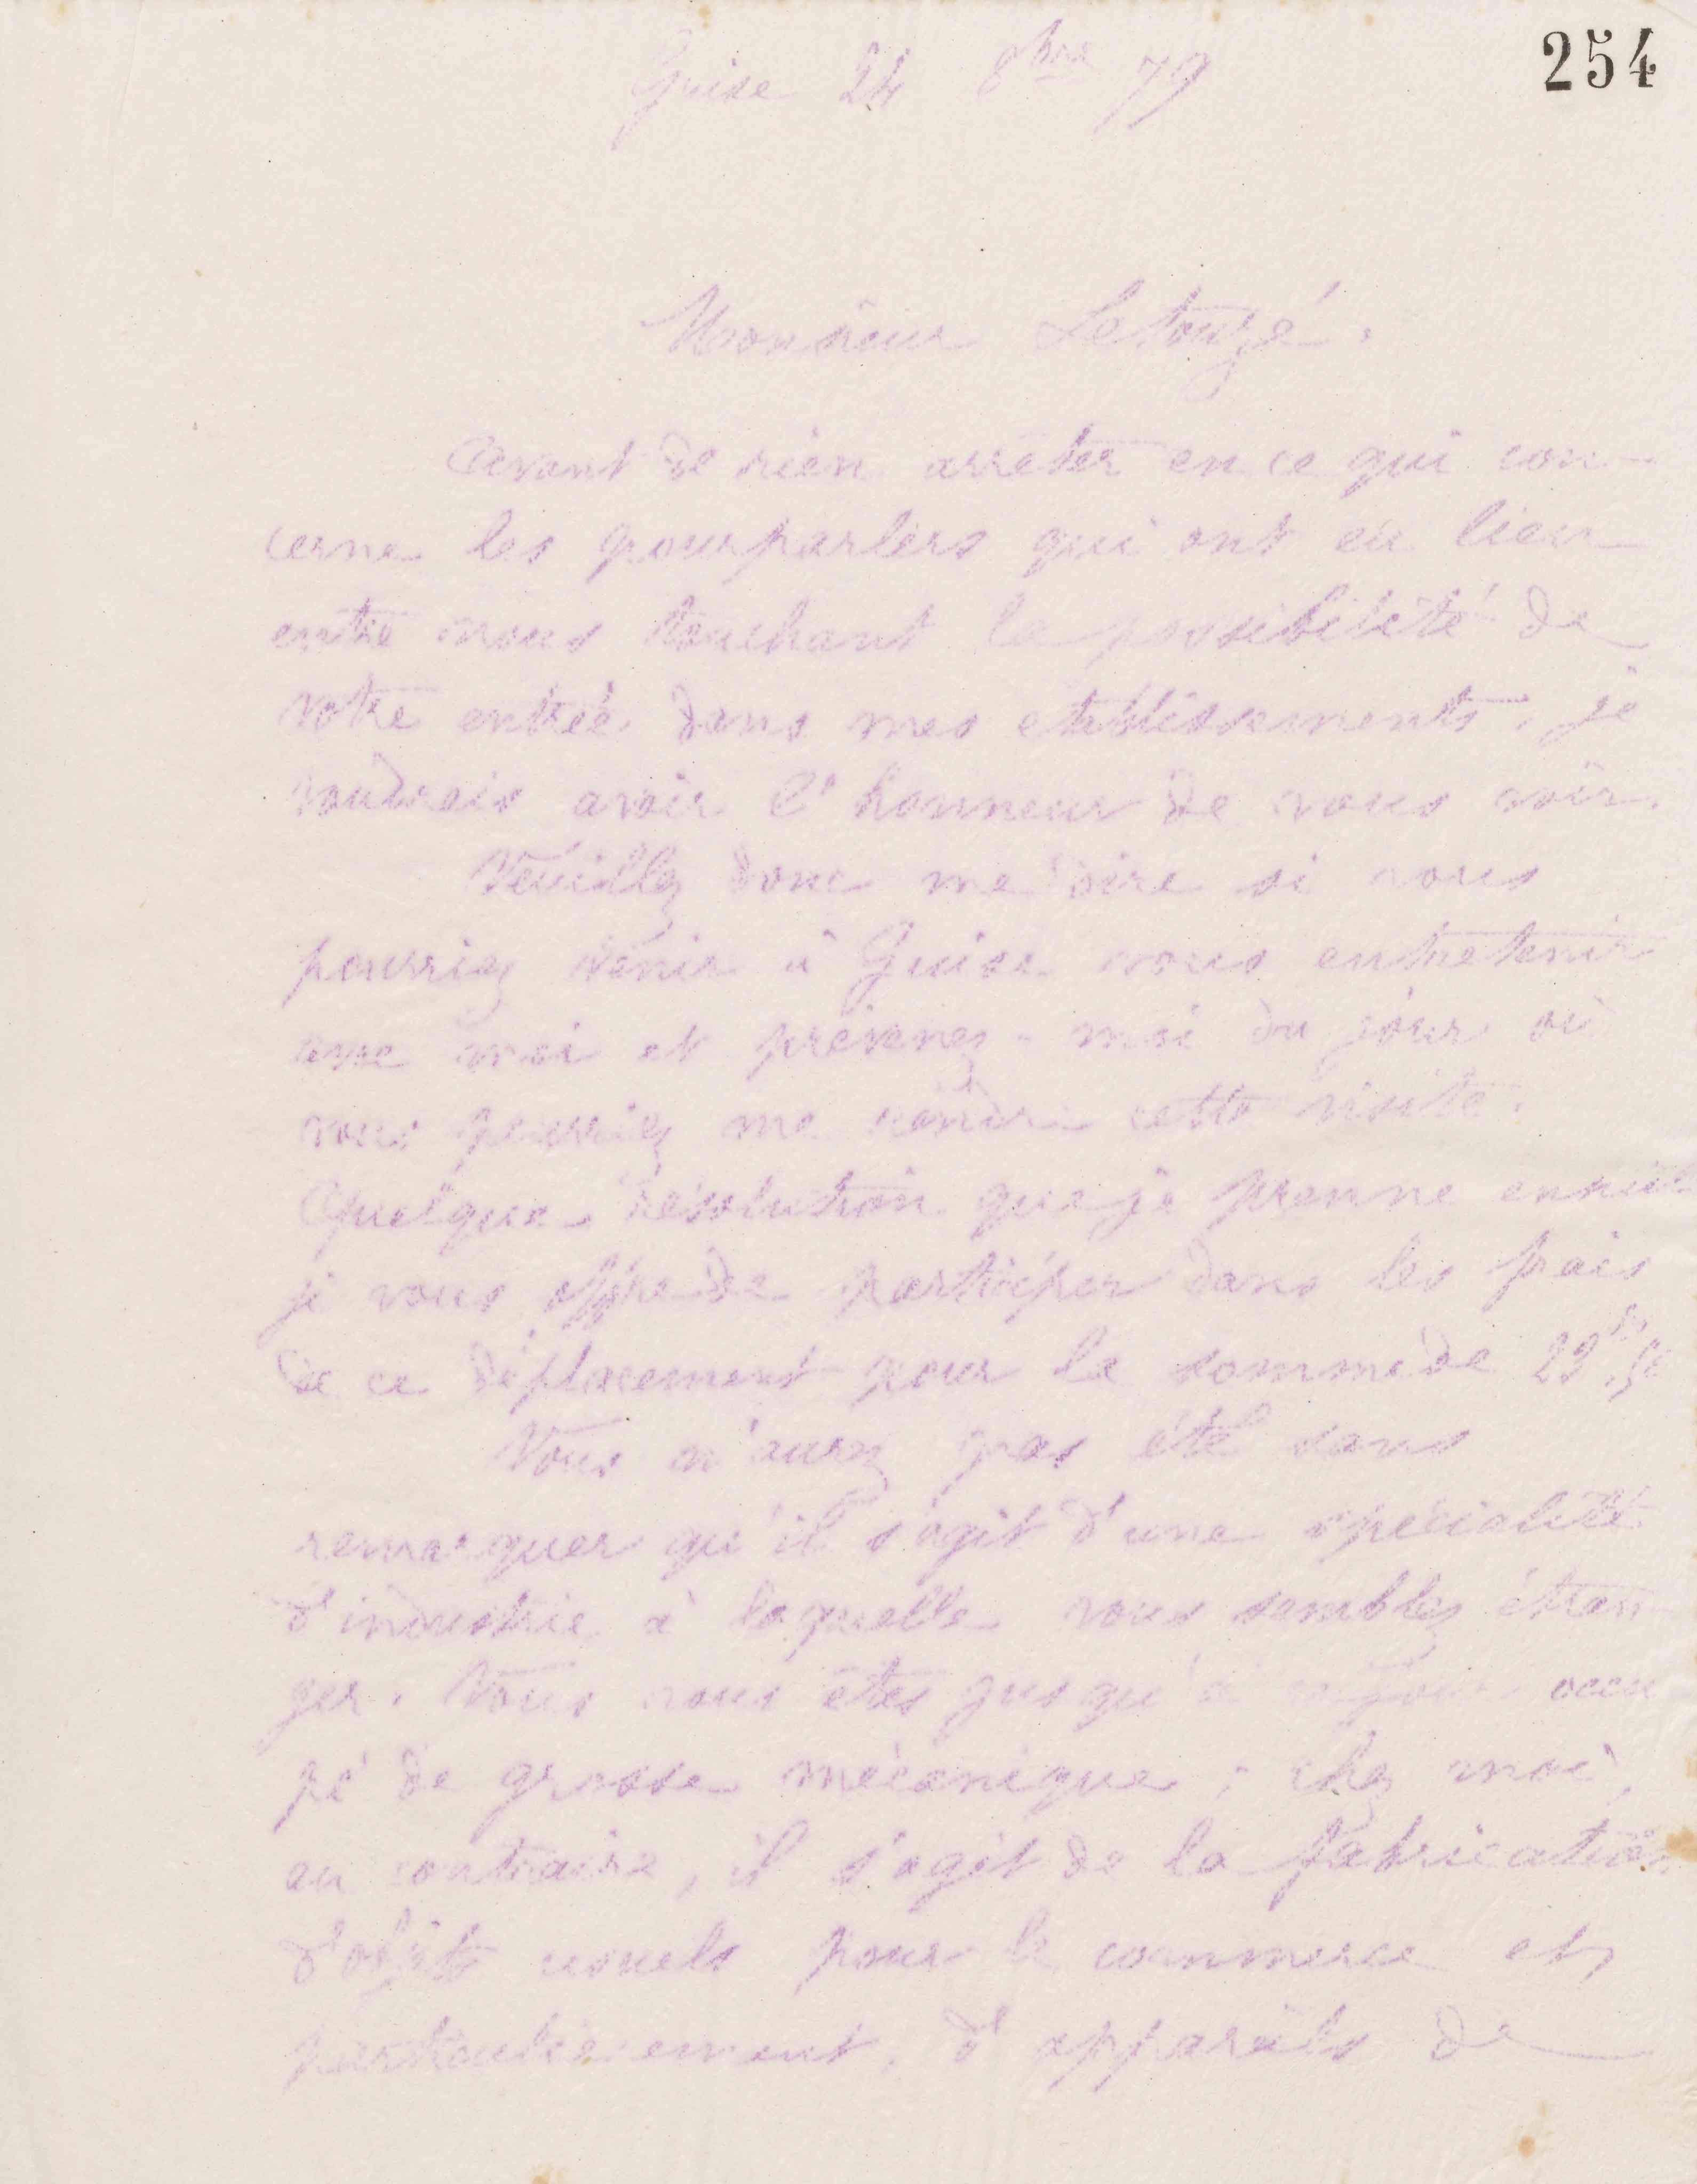 254
Guise 24 8bre 79
Monsieur Letouzé.
Avant de rien arrêter en ce qui con-
cerne les pourparlers qui ont eu lieu
entre nous touchant la possibilité de
votre entrée dans mes etablissements, je
voudrais avoir l'honneur de vous voir.
Veuillez donc me dire si vous
pourriez venir à Guise vous entretenir
avec moi et prévenez-moi du jour où
vous pourriez me rendre cette visite.
Quelque résolution que je prenne ensuite
je vous offre de participer dans les frais
de ce déplacement pour la somme de
Vous n'aurez pas été sans
remarquer qu'il s'agit d'une spécialité
d'industrie à laquelle vous semblez étran
ger. Vous vous êtes jusqu'à ce jour occu
pé de grosse mécanique ; chez moi,
au contraire, il s'agit de la fabrication
d'objets usuels pour le commerce et,
particulièrement, d'appareils de